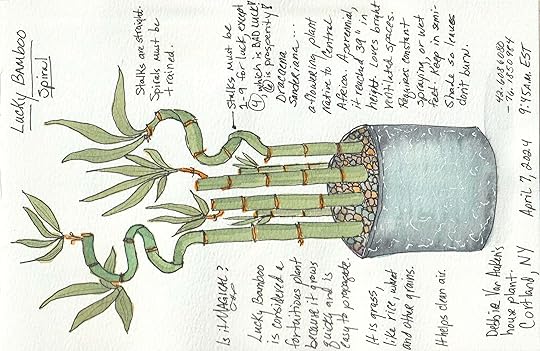 Lucky Bamboo
Spiral
Stalks are straight.
Spirals must be
trained.
Stalks must be
1-9 for luck, except
4, which is BAD LUCK!
is prosperity!
Dracaena
Sanderiana...
a flowering plant
Native to Central
Africa. A perennial,
it reached 39" in
height. Loves bright
ventilated spaces.
Requires constant
spraying, or wet
feet. Keep in semi-
shade so leaves
don't burn.
Is it MAGICAL?
Lucky Bamboo
is considered a
fortuitious plant
because it grows
quickly and is
easy to propagate.
It is grass,
like rice, wheat
and other grains.
It helps clean air.
Debbie Van Auken's
house plant.
Cortland, NY
April 7, 2024
9:45am EST